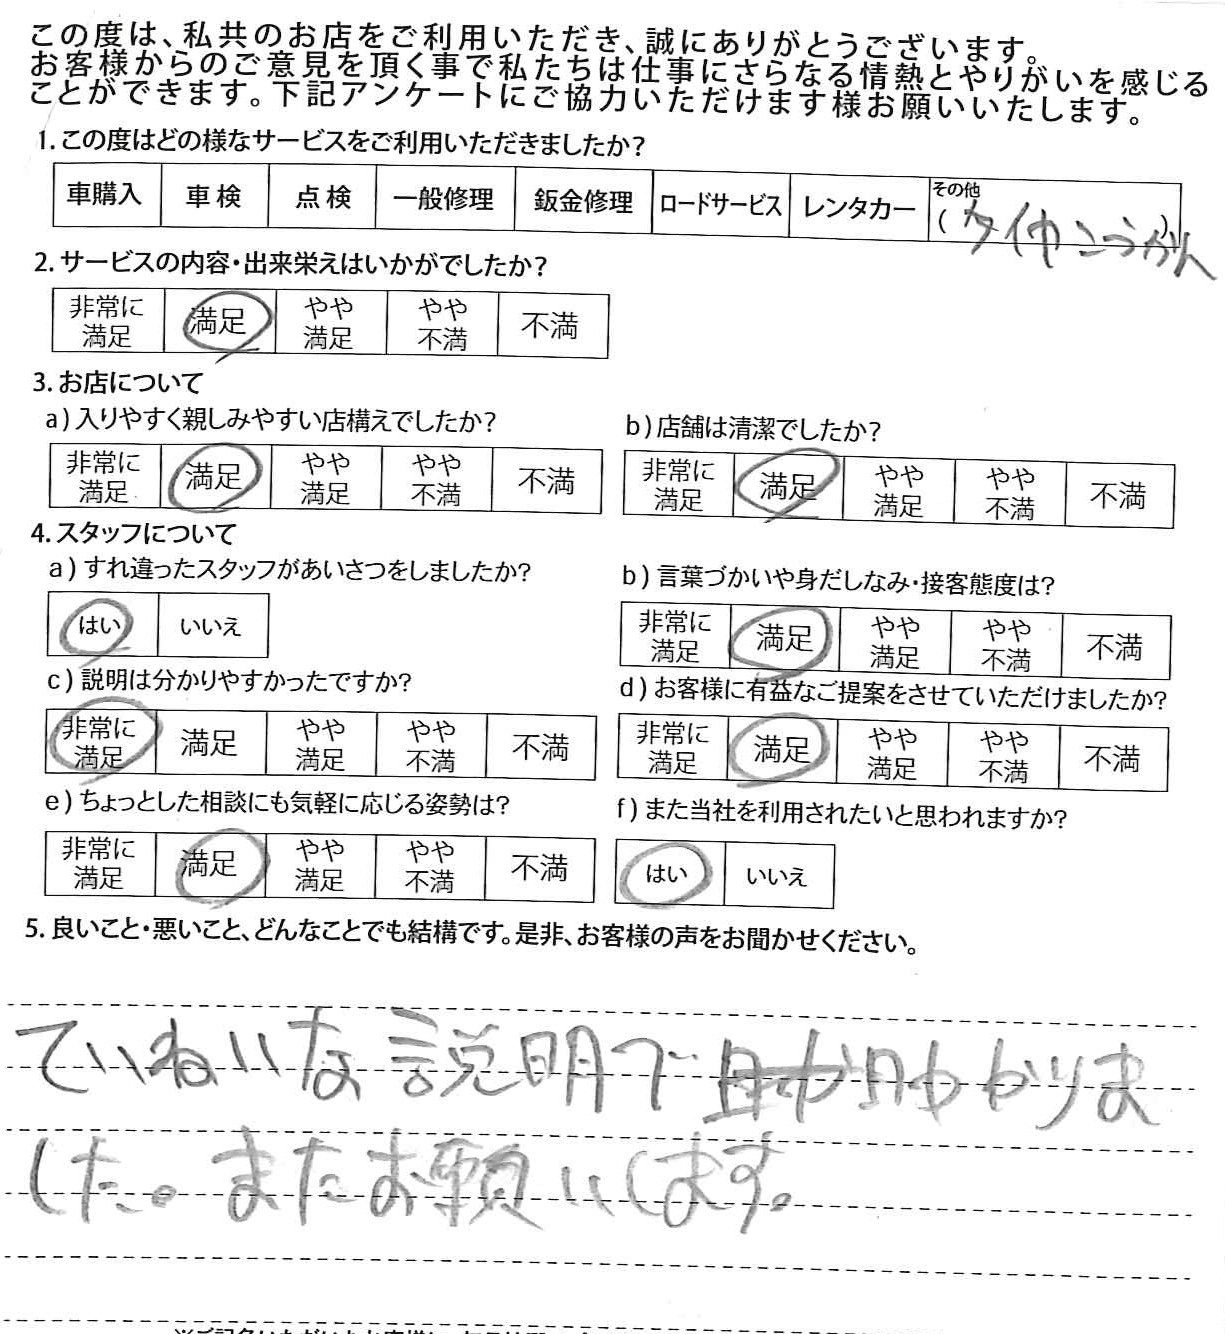 この度は、私共のお店をご利用いただき、誠にありがとうございます。
お客様からのご意見を頂く事で私たちは仕事にさらなる情熱とやりがいを感じる
ことができます。下記アンケートにご協力いただけます様お願いいたします。
1.この度はどの様なサービスをご利用いただきましたか?
車購入 車検 点検 一般修理 鈑金修理 ロードサービス レンタカー その他
(タイヤこうかん)
2.サービスの内容・出来栄えはいかがでしたか?
非常に満足 満足 やや満足 やや不満 不満
3.お店について
a)入りやすく親しみやすい店構えでしたか?
非常に満足 満足 やや満足 やや不満 不満
b)店舗は清潔でしたか?
非常に満足 満足 やや満足 やや不満 不満
4.スタッフについて
a)すれ違ったスタッフがあいさつをしましたか?
はい いいえ
b)言葉づかいや身だしなみ・接客態度は?
非常に満足 満足 やや満足 やや不満 不満
c)説明は分かりやすかったですか?
非常に満足 満足 やや満足 やや不満 不満
d)お客様に有益なご提案をさせていただけましたか?
非常に満足 満足 やや満足 やや不満 不満
e)ちょっとした相談にも気軽に応じる姿勢は?
非常に満足 満足 やや満足 やや不満 不満
f)また当社を利用されたいと思われますか?
はい いいえ
5.良いこと・悪いこと、どんなことでも結構です。是非、お客様の声をお聞かせください。
ていねいな説明で 助かりま
した。またお願いします。